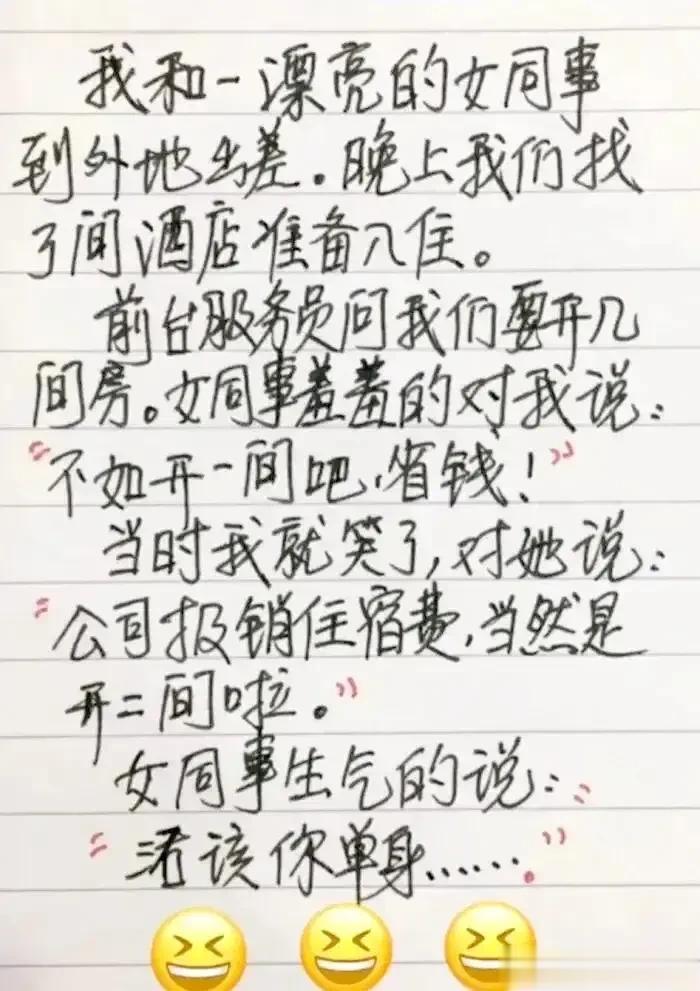 我和一漂亮的女同事
到外地出差。晚上我们找
了间酒店准备入住。
前台服务员问我们要开几
间房。女同事羞羞的对我说:
“不如开一间吧,省钱!”
当时我就笑了,对她说:
“公司报销住宿费,当然是
开二间啦。”
女同事生气的说:
“活该你单身……."